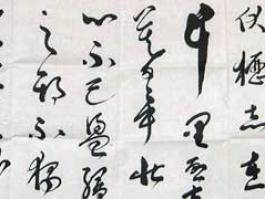 伏櫪志在
千里烈士
暮年壮
心不已盈縮
之期不獨